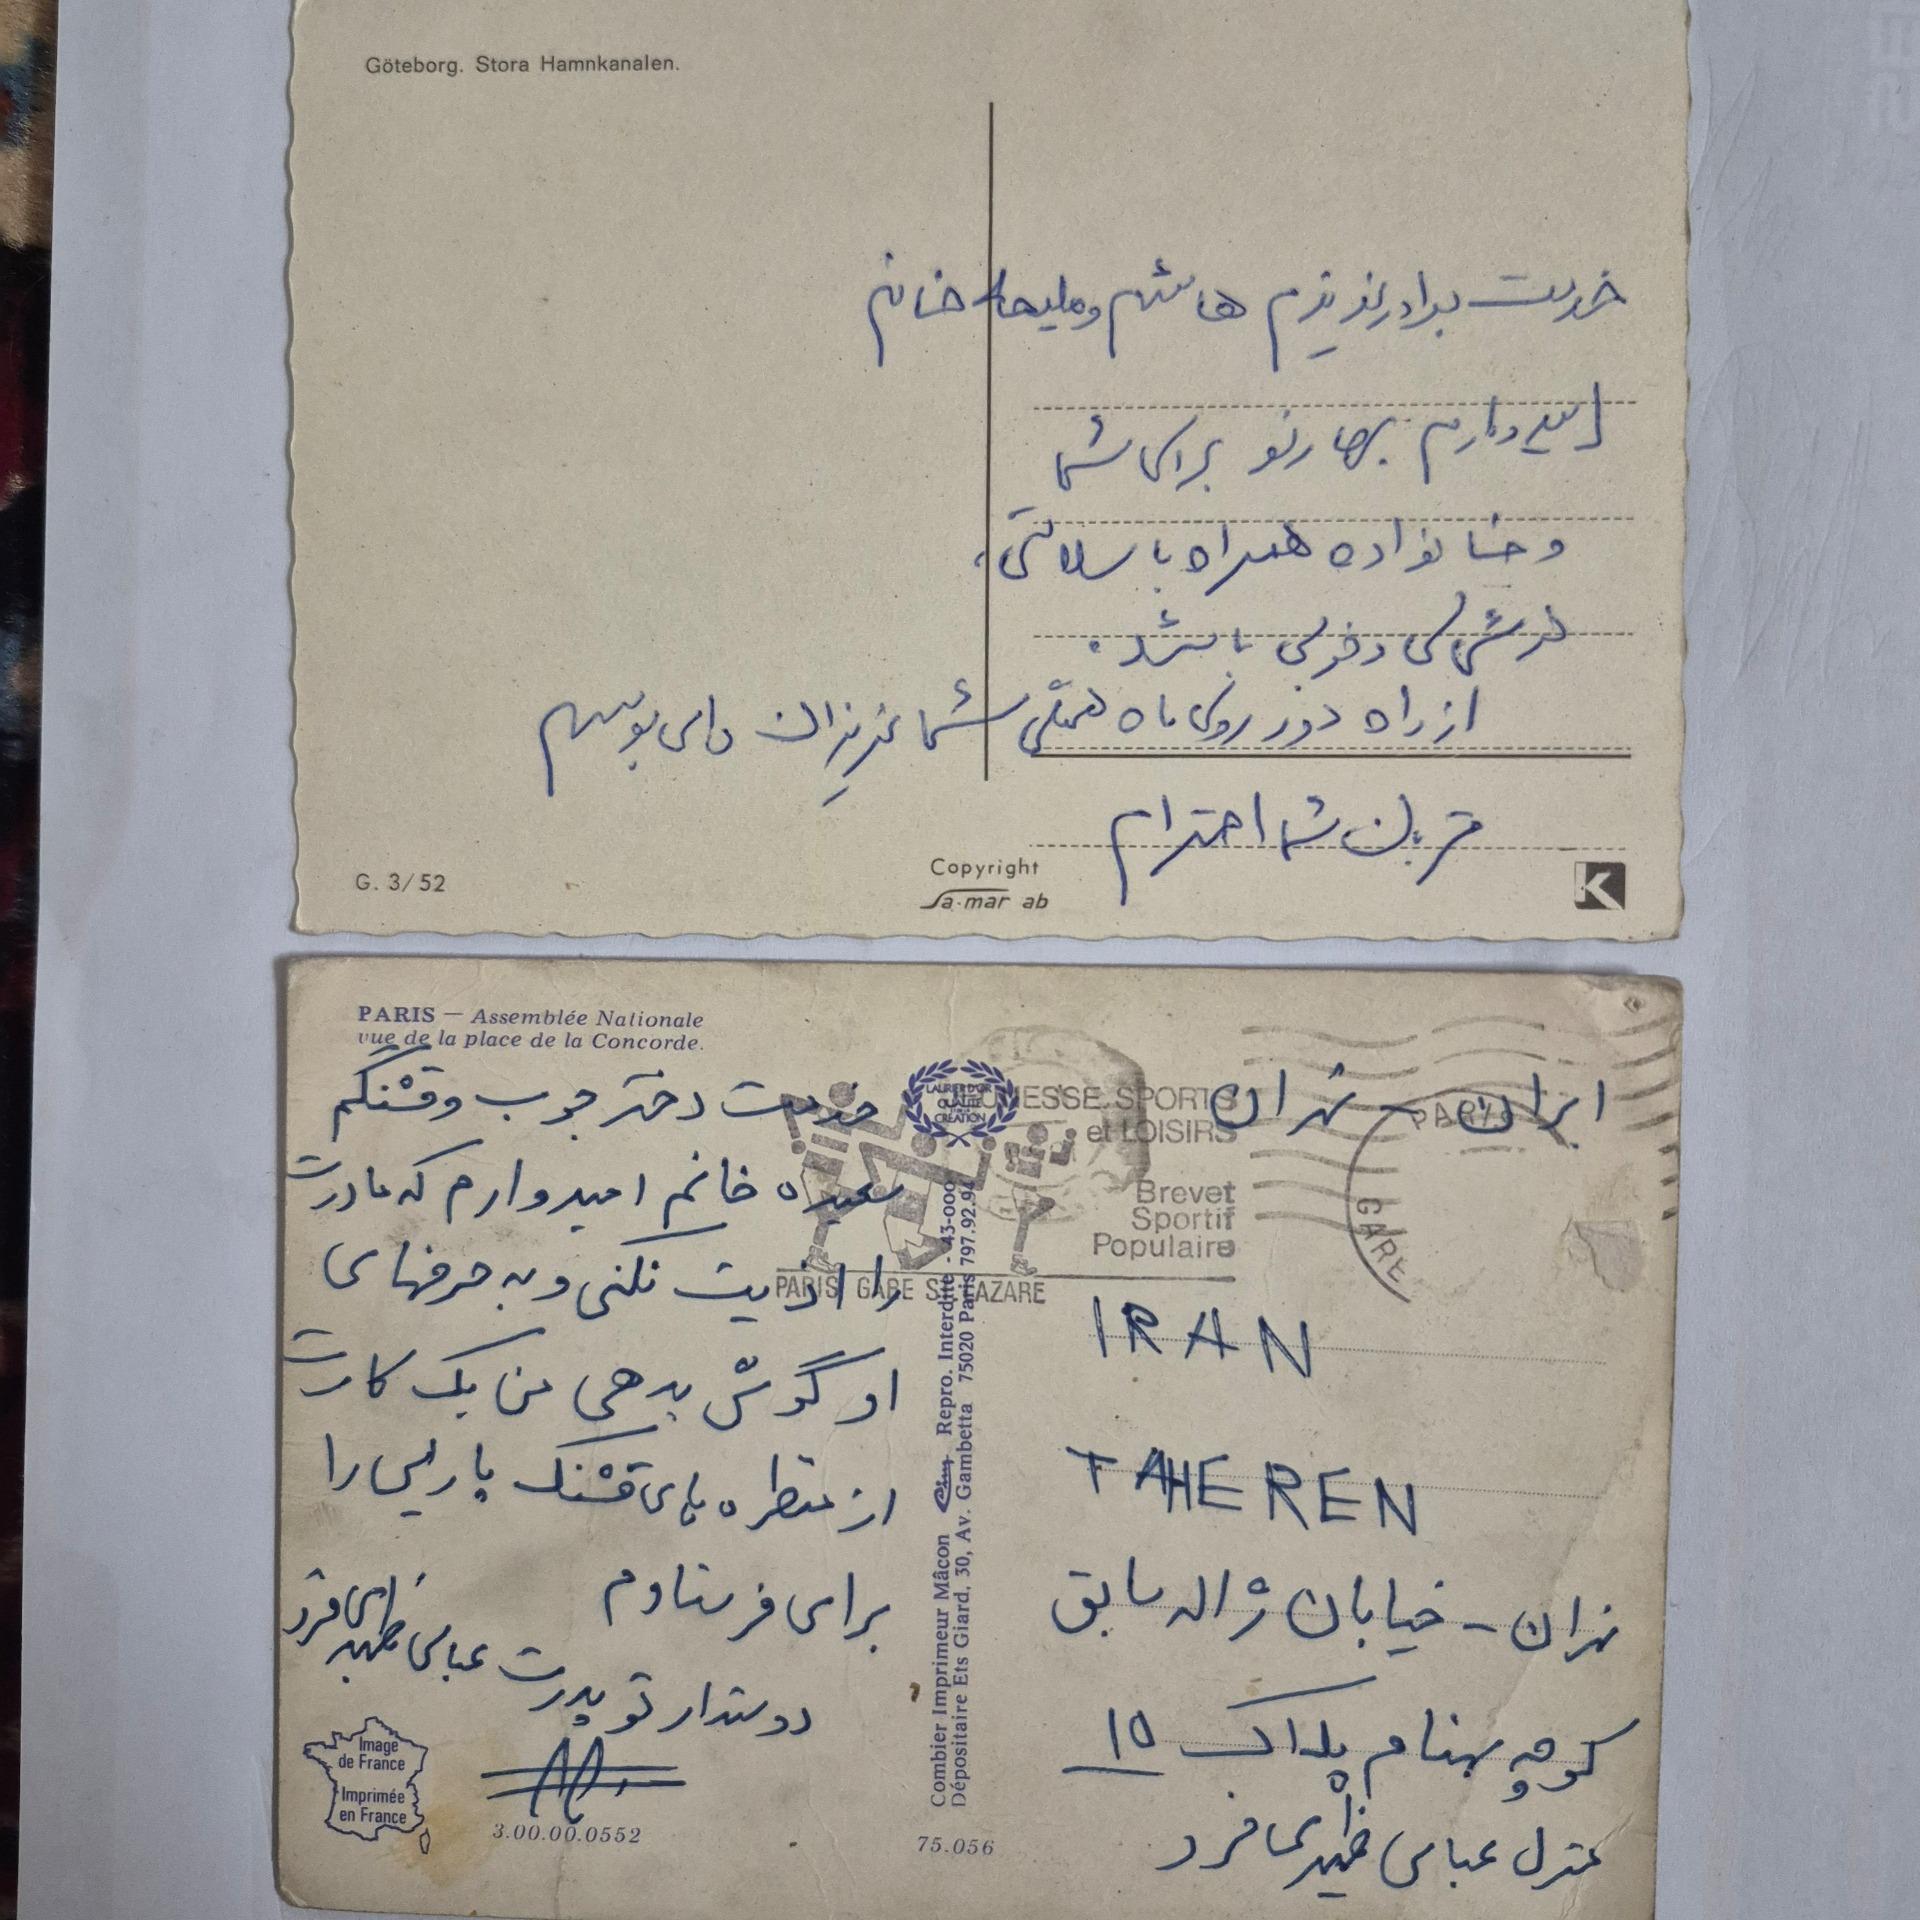 Göteborg. Stora Hamnkanalen.
خدمت برادر عزیزم هاشم و ملیحه خانم
امیدوارم بهار نو برای شما
و خانواده همراه با سلامتی،
خوشی و خوبی باشد.
از راه دور روی ماه همگی شما عزیزان را می بوسم
قربان شما احترام
G. 3/52
Copyright
Sa-mar ab
K
PARIS — Assemblée Nationale
vue de la place de la Concorde.
خدمت دختر خوب و قشنگم
سعیده خانم امیدوارم که مادرت
را اذیت نکنی و به حرفهای
او گوش بدهی من یک کارت
از منظره های قشنگ پاریس را
برای فرستادم
دوستدار تو پدرت عباس
Image
de France
Imprimée
en France
3.00.00.0552
75.056
LAURIER D'OR
QUALITE
CREATION
Combier Imprimeur Mâcon Cim Repro. Interdite - 43-000
Dépositaire Ets Giard, 30, Av. Gambetta 75020 Paris 797.92.94
JEUNESSE SPORTS
et LOISIRS
Brevet
Sportif
Populaire
PARIS GARE ST LAZARE
PARIS
GARE
ایران - تهران
IRAN
TAHEREN
تهران - خیابان ژاله سابق
کوچه بهنام پلاک ۱۵
منزل عباس